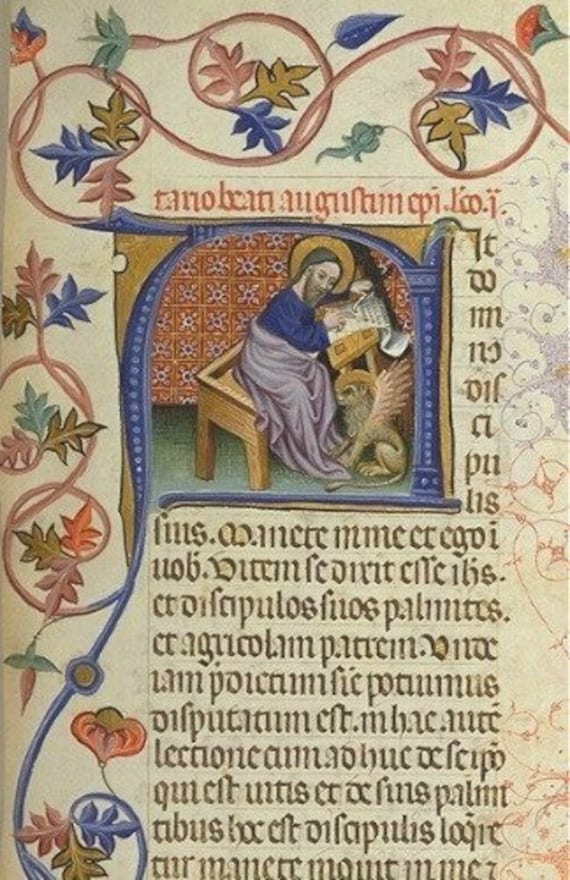 tario beati augustini epī. lc̄o. ij.
A
It
do
mi
no
dis
ci
pu
lis
suis. Manete in me et ego ī
uob̄. Vitem se dixit esse ihs.
et discipulos suos palmites.
et agricolam patrem. Vnde
iam
disputatum est. in hac autē
lectione cum adhuc de se ip̄o
qui est uitis et de suis palmi
tibus hoc est discipulis loq̄re
tur manete inquit in me